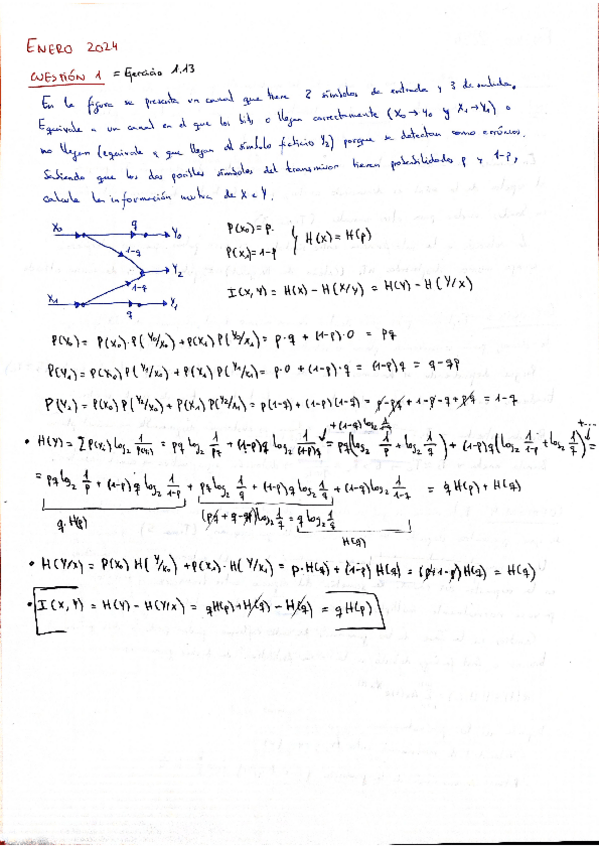 ENERO 2024
CUESTIÓN 1 = Ejercicio 1.13
En la figura se presenta un canal que tiene 2 símbolos de entrada y 3 de salida.
Equivale a un canal en el que los bits o llegan correctamente (X₀→Y₀ y X₁→Y₁) o
no llegan (equivale a que llegan al símbolo ficticio Y₂) porque se detectan como erróneos.
Sabiendo que los dos posibles símbolos del transmisor tienen probabilidades p y 1-p,
calcule la información mutua de X e Y.
X₀ q Y₀
1-q
Y₂
1-q
X₁ q Y₁
P(X₀) = p.
P(X₁) = 1-p
H(X) = H(p)
I(X,Y) = H(X) - H(X/Y) = H(Y) - H(Y/X)
P(Y₀) = P(X₀)·P(Y₀/X₀) + P(X₁) P(Y₀/X₁) = p·q + (1-p)·0 = pq
P(Y₁) = P(X₀) P(Y₁/X₀) + P(X₁) P(Y₁/X₁) = p·0 + (1-p)·q = (1-p)q = q-qp
P(Y₂) = P(X₀) P(Y₂/X₀) + P(X₁) P(Y₂/X₁) = p(1-q) + (1-p)(1-q) = p - pq + 1 - p - q + pq = 1-q
+ (1-q) log₂ 1/1-q
+...
• H(Y) = Σ P(Yᵢ) log₂ 1/P(Yᵢ) = pq log₂ 1/pq + (1-p)q log₂ 1/(1-p)q = pq(log₂ 1/p + log₂ 1/q) + (1-p)q (log₂ 1/1-p + log₂ 1/q) =
= pq log₂ 1/p + (1-p)q log₂ 1/1-p + pq log₂ 1/q + (1-p)q log₂ 1/q + (1-q) log₂ 1/1-q = q H(p) + H(q)
q·H(p)
(pq + q - qp) log₂ 1/q = q log₂ 1/q
H(q)
• H(Y/X) = P(X₀) H(Y/X₀) + P(X₁)·H(Y/X₁) = p·H(q) + (1-p) H(q) = (p+1-p) H(q) = H(q)
• I(X,Y) = H(Y) - H(Y/X) = qH(p) + H(q) - H(q) = qH(p)